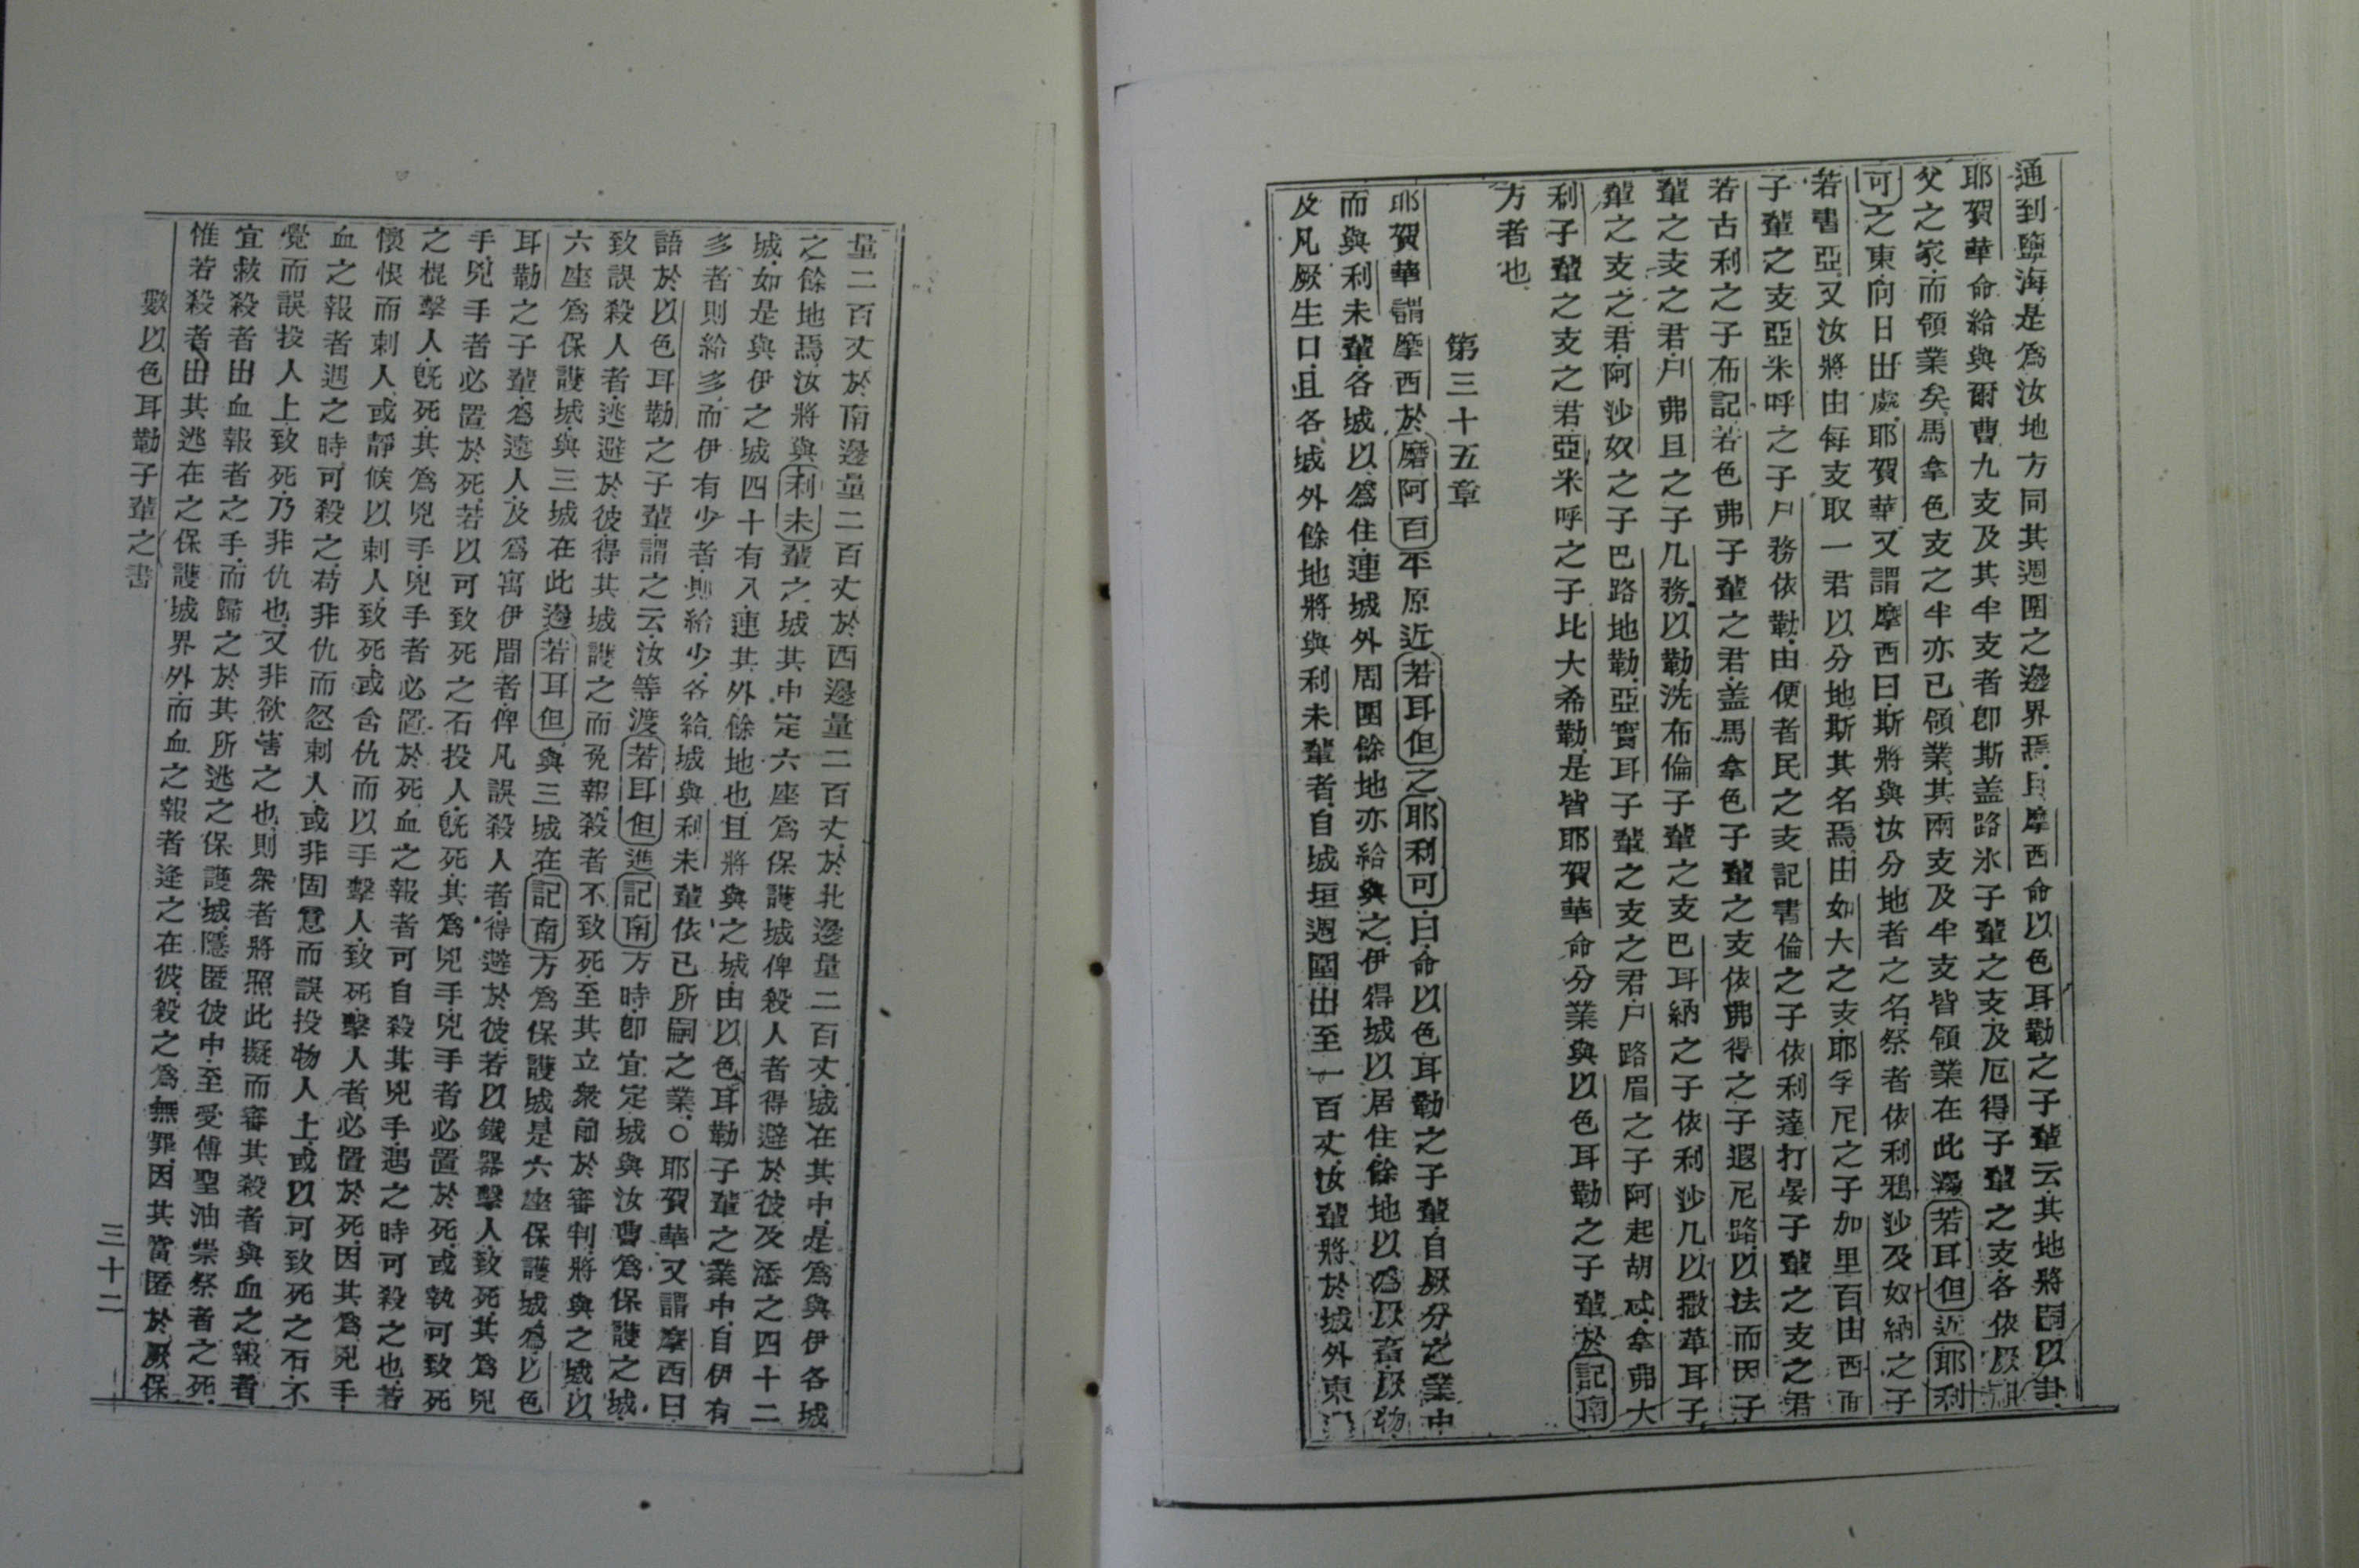 通到鹽海是為汝地方同其週圍之邊界焉且摩西命以色耳勒之子輩云其地將嗣以卦
耶賀華命給與爾曹九支及其半支者卽斯盖路氷子輩之支及厄得子輩之支各依厥
父之家而領業矣馬拿色支之半亦已領業其兩支及半支皆領業在此邊若耳但近耶利
可之東向日出處耶賀華又謂摩西曰斯將與汝分地者之名祭者依利鴉沙及奴納之子
若書亞又汝將由每支取一君以分地斯其名焉由如大之支耶孚尼之子加里百由西面
子輩之支亞米呼之子戶務依勒由便者民之支記書倫之子依利達打晏子輩之支之君
若古利之子布記若色弗子輩之君盖馬拿色子輩之支依弗得之子遐尼路以法而因子
輩之支之君戶弗且之子几務以勒洗布倫子輩之支巴耳納之子依利沙几以撒革耳子
輩之支之君阿沙奴之子巴路地勒亞實耳子輩之支之君戶路眉之子阿起胡忒拿弗大
利子輩之支之君亞米呼之子比大希勒是皆耶賀華命分業與以色耳勒之子輩於記南
方者也
第三十五章
耶賀華謂摩西於磨阿百平原近若耳但之耶利可曰命以色耳勒之子輩自厥分之業中
而與利未輩各城以為住連城外周圍餘地亦給與之伊得城以居住餘地以為厥畜厥物
及凡厥生口且各城外餘地將與利未輩者自城垣週圍出至一百丈汝輩將於城外東
量二百丈於南邊量二百丈於西邊量二百丈於北邊量二百丈城在其中是為與伊各城
之餘地焉汝將與利未輩之城其中定六座為保護城俾殺人者得避於彼及添之四十二
城如是與伊之城四十有八連其外餘地也且將與之城由以色耳勒子輩之業中自伊有
多者則給多而伊有少者則給少各給城與利未輩依已所嗣之業○耶賀華又謂摩西曰
語於以色耳勒之子輩謂之云汝等渡若耳但進記南方時卽宜定城與汝曹為保護之城
致誤殺人者逃避於彼得其城護之而免報殺者不致死至其立衆前於審判將與之城以
六座為保護城與三城在此邊若耳但與三城在記南方為保護城是六座保護城為以色
耳勒之子輩為遠人及為寓伊間者俾凡誤殺人者得避於彼若以鐵器擊人致死其為兇
手兇手者必置於死若以可致死之石投人旣死其為兇手兇手者必置於死或執可致死
之棍擊人旣死其為兇手兇手者必置於死血之報者可自殺其兇手遇之時可殺之也若
懷恨而刺人或靜候以刺人致死或含仇而以手擊人致死擊人者必置於死因其為兇手
血之報者遇之時可殺之苟非仇而忽刺人或非固意而誤投物人上或以可致死之石不
覺而誤投人上致死乃非仇也又非欲害之也則衆者將照此擬而審其殺者與血之報者
宜救殺者出血報者之手而歸之於其所逃之保護城隱匿彼中至受傅聖油祟祭者之死
惟若殺者出其逃在之保護城界外而血之報者逢之在彼殺之為無罪因其當匿於厥保
數以色耳勒子輩之書
三十二